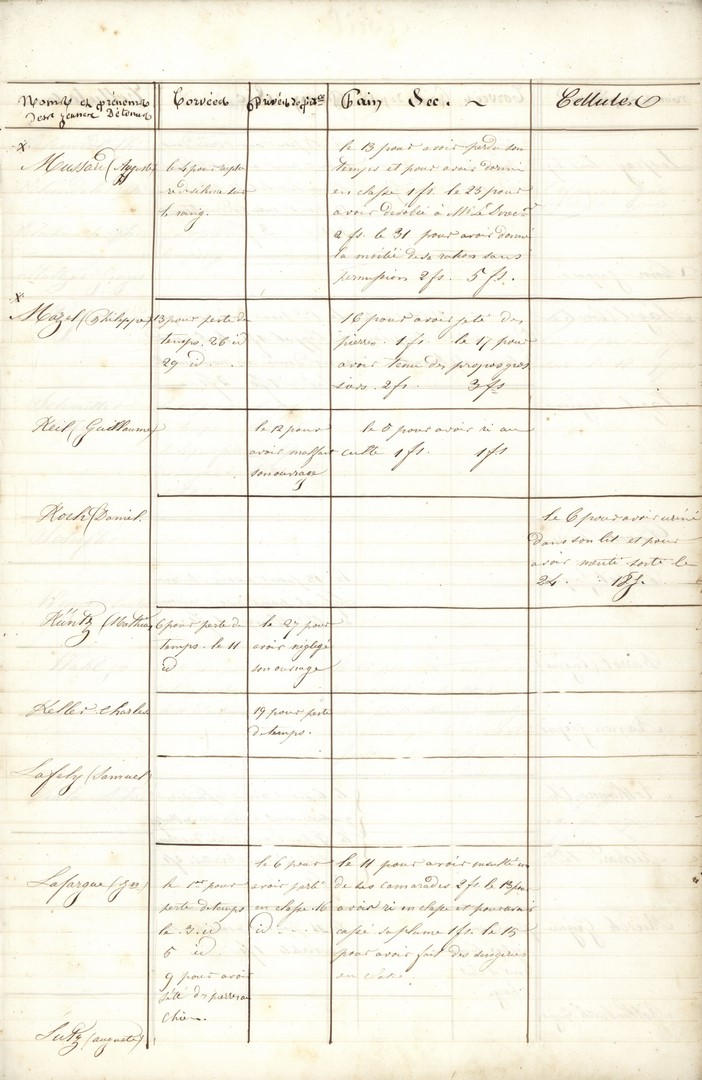 Noms et prénoms Corvées Privés de pitce Pain Sec. ~ Cellules
des jeunes Détenus
x
Mussard (Auguste)
le 4 pour
le mig.
le 13 pour avoir perdu son
temps et pour avoir dormi
en classe 1 fs. le 23 pour
avoir désobéi à Mr Le
2 fs. le 31 pour avoir donné
la moitié de sa ration sans
permission 2 fs. 5 fs.
x
Mazel (Philippe)
13 pour perte de
temps. 26 id
29 id
16 pour avoir jeté des
pierres. 1 fs. le 17 pour
avoir tenu des propos gros
siers. 2 fs. 3 fs
Keil (Guillaume)
le 12 pour
avoir mal fait
son ouvrage
le 5 pour avoir ri au
culte 1 fs. 1 fs
Koch (Daniel.
le 6 pour avoir uriné
dans son lit et pour
avoir menti sorti le
24. 18 j.
Küntz (Mathias)
6 pour perte de
temps. le 11
id
le 27 pour
avoir négligé
son ouvrage
Keller Charles
19 pour perte
de temps.
Lafely (Samuel)
Lafargue (Jn)
le 1er pour
perte de temps
le 3. id
5 id
9 pour avoir
jeté des pierres au
chien.
le 6 pour
avoir parlé
en classe. 16
id
le 11 pour avoir insulté un
de ses camarades 2 fs. le 13 pour
avoir ri en classe et pour avoir
cassé sa plume 1 fs. le 15
pour avoir fait des singeries
en classe.
Lutz (auguste)